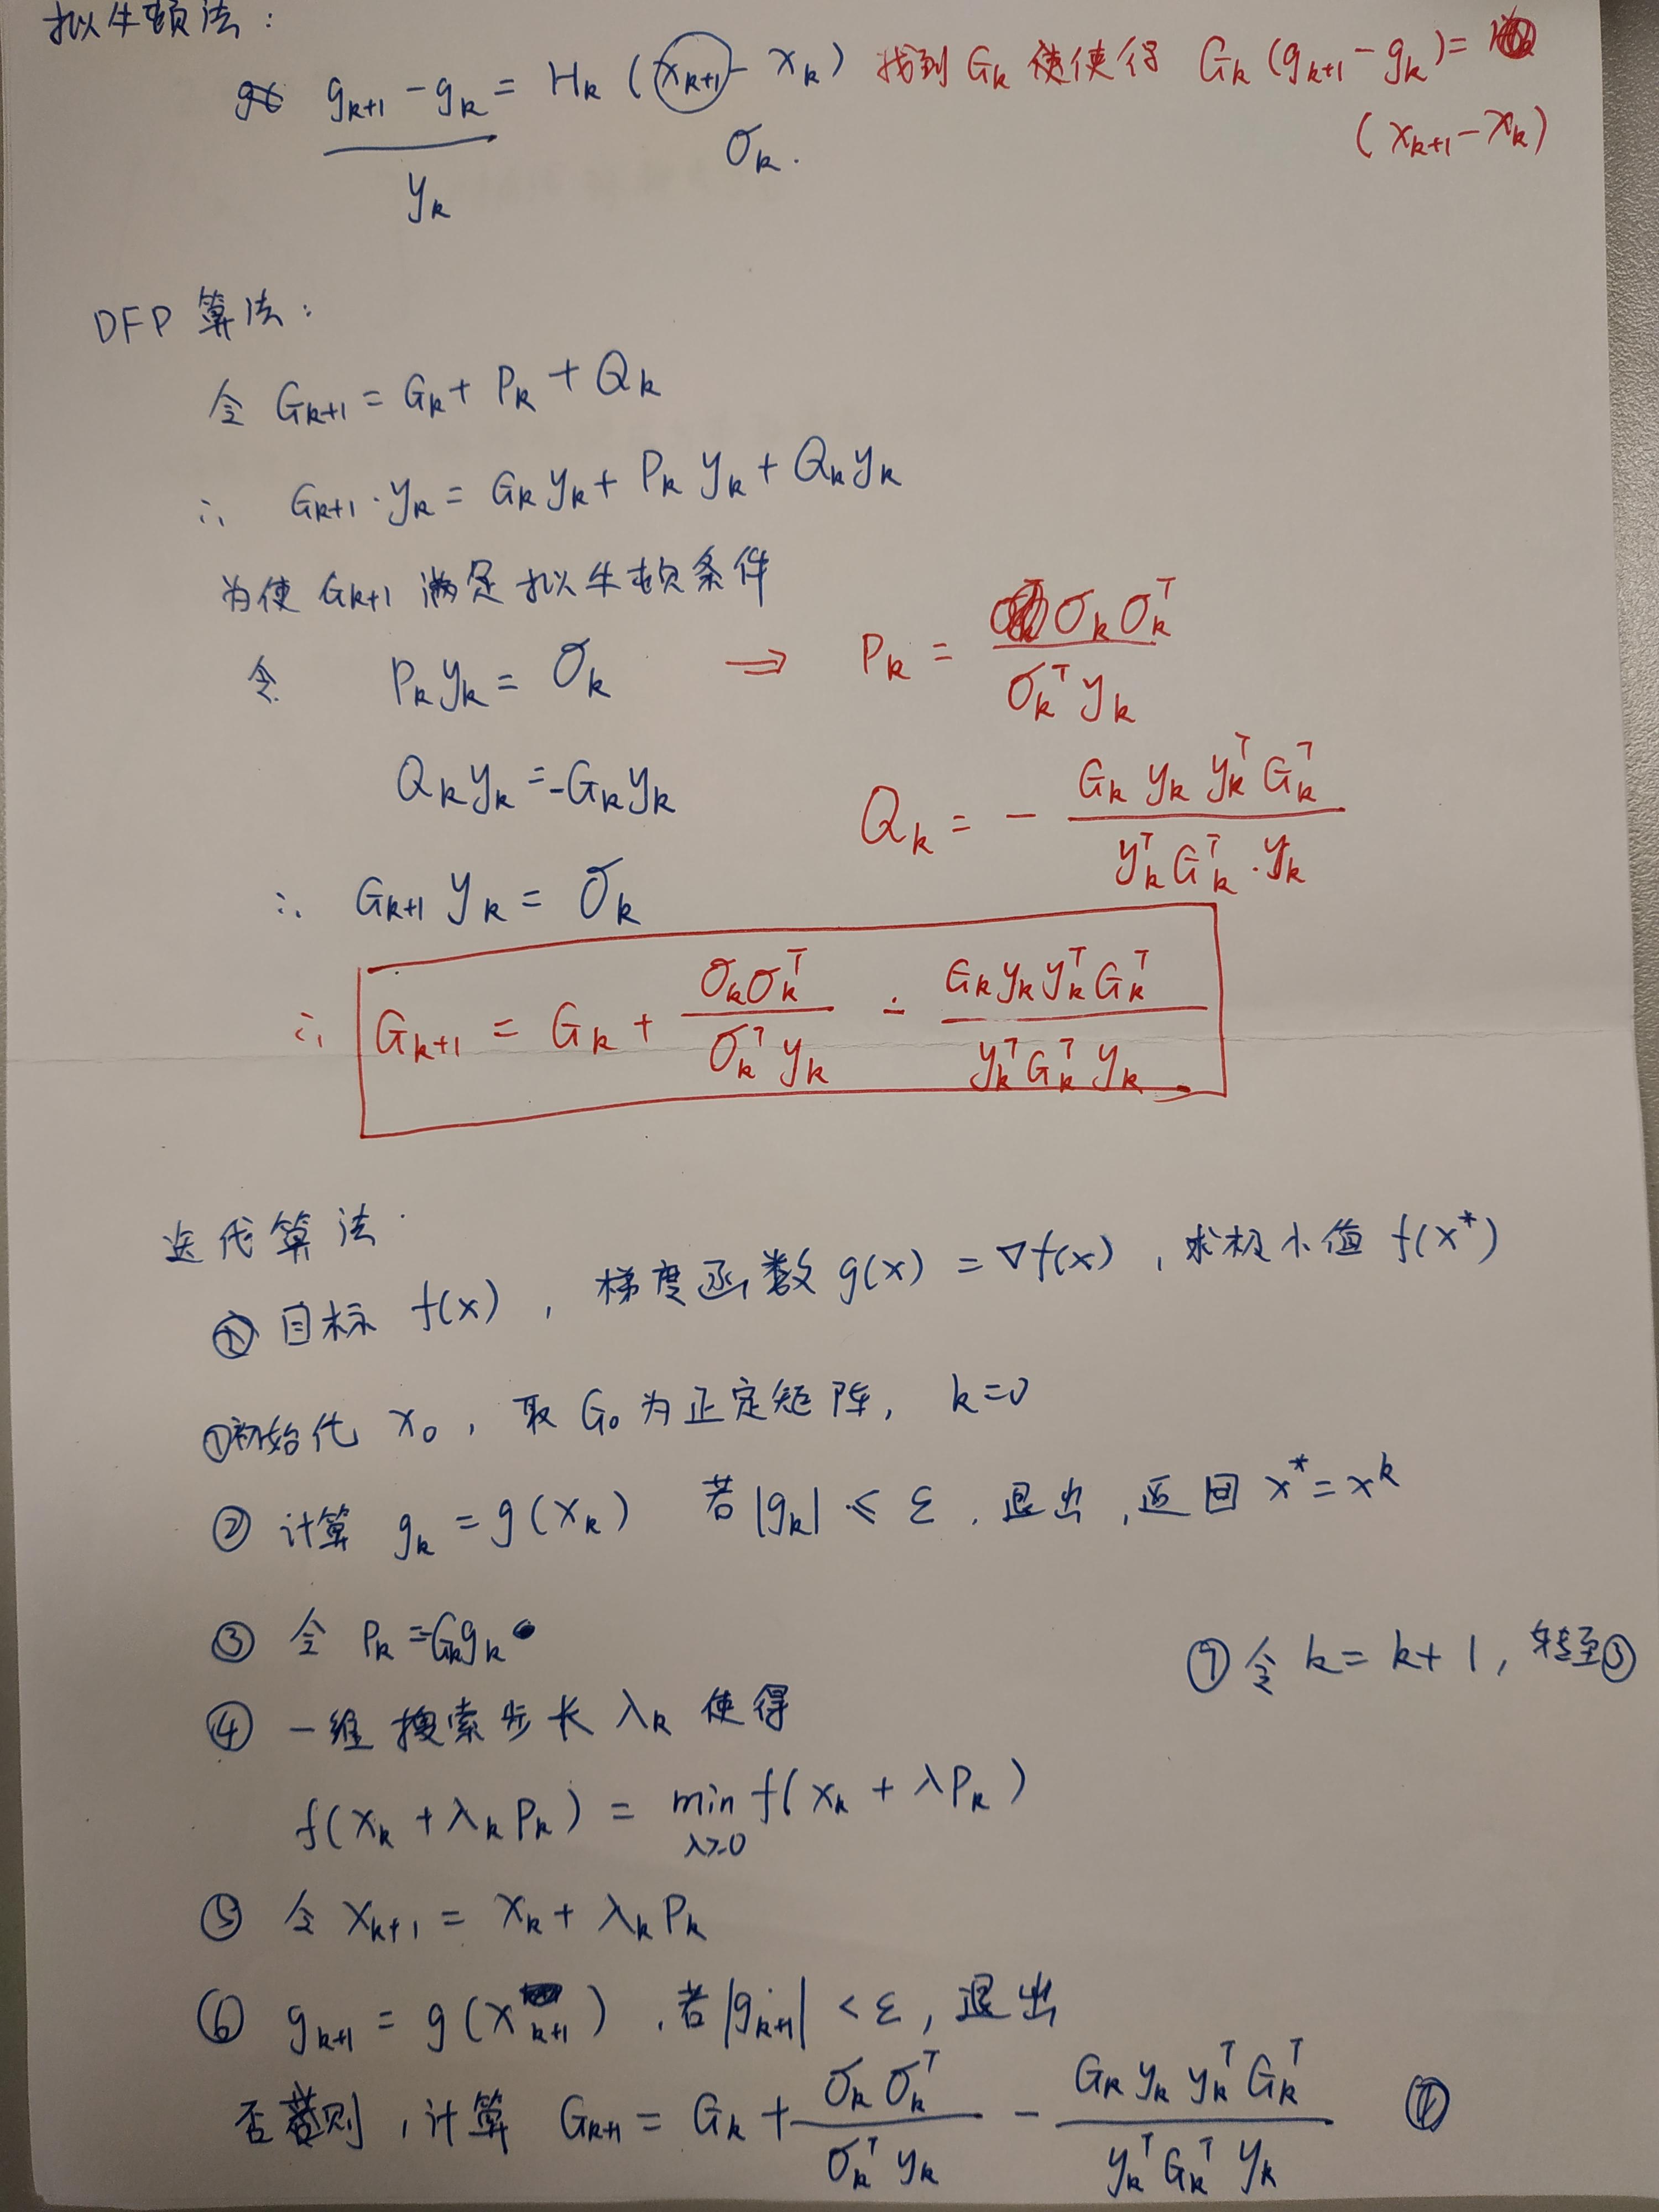 拟牛顿法：
g_{k+1} - g_k = H_k (x_{k+1} - x_k) 找到 G_k 使使得 G_k (g_{k+1} - g_k) =
y_k σ_k. (x_{k+1} - x_k)
DFP 算法：
令 G_{k+1} = G_k + P_k + Q_k
∴ G_{k+1}·y_k = G_k y_k + P_k y_k + Q_k y_k
为使 G_{k+1} 满足拟牛顿条件
令 P_k y_k = σ_k ⇒ P_k = \frac{σ_k σ_k^T}{σ_k^T y_k}
Q_k y_k = -G_k y_k Q_k = - \frac{G_k y_k y_k^T G_k^T}{y_k^T G_k^T · y_k}
∴ G_{k+1} y_k = σ_k
∴ G_{k+1} = G_k + \frac{σ_k σ_k^T}{σ_k^T y_k} - \frac{G_k y_k y_k^T G_k^T}{y_k^T G_k^T y_k}
迭代算法.
目标 f(x)，梯度函数 g(x) = ∇f(x)，求极小值 f(x*)
①初始化 x_0，取 G_0 为正定矩阵，k=0
② 计算 g_k = g(x_k) 若 |g_k| ≤ ε，退出，返回 x* = x^k
③ 令 P_k = G_k g_k
④ 一维搜索步长 λ_k 使得
f(x_k + λ_k P_k) = \min_{λ≥0} f(x_k + λP_k)
⑤ 令 x_{k+1} = x_k + λ_k P_k
⑥ g_{k+1} = g(x_{k+1})，若 |g_{k+1}| < ε，退出
否则，计算 G_{k+1} = G_k + \frac{σ_k σ_k^T}{σ_k^T y_k} - \frac{G_k y_k y_k^T G_k^T}{y_k^T G_k^T y_k}
⑦ 令 k = k+1，转至③